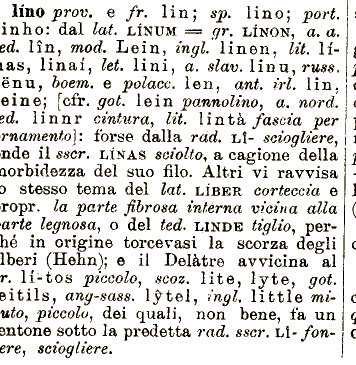 líno prov. e fr. lin; sp. lino; port.
inho: dal lat. LÍNUM = gr. LÍNON, a. a.
ed. lîn, mod. Lein, ingl. linen, lit. lí-
nas, linaí, let. lini, a. slav. linu, russ.
ënu, boem. e polacc. len, ant. irl. lin,
eine; [cfr. got. lein pannolino, a. nord.
ed. linnr cintura, lit. lintà fascia per
rnamento]: forse dalla rad. LÎ- sciogliere,
nde il sscr. LÎNAS sciolto, a cagione della
morbidezza del suo filo. Altri vi ravvisa
o stesso tema del lat. LÍBER corteccia e
propr. la parte fibrosa interna vicina alla
arte legnosa, o del ted. LINDE tiglio, per-
hé in origine torcevasi la scorza degli
lberi (Hehn); e il Delàtre avvicina al
r. lí-tos piccolo, scoz. lite, lyte, got.
eitils, ang-sass. lŷtel, ingl. little mi-
uto, piccolo, dei quali, non bene, fa un
entone sotto la predetta rad. sscr. LÎ- fon-
ere, sciogliere.